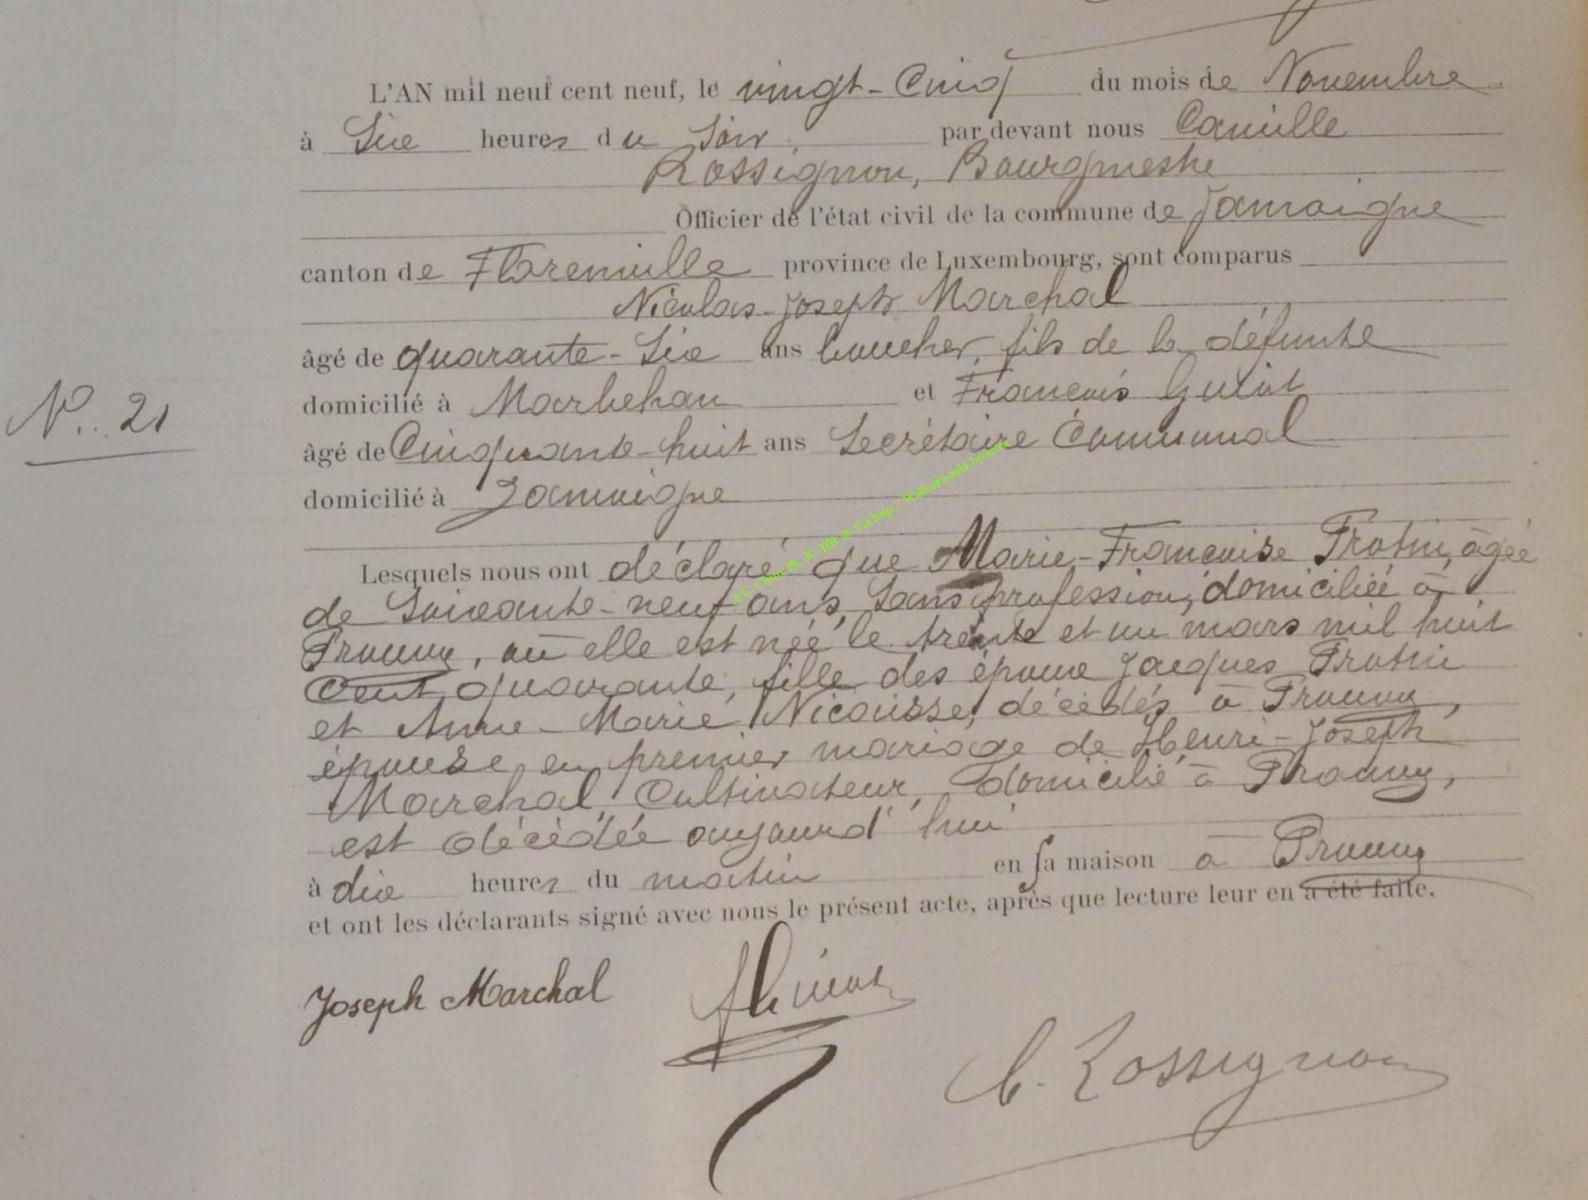 L'AN mil neuf cent neuf, le vingt-Cinq du mois de Novembre
à Six heures du Soir, par devant nous Camille
Rossignon, Bourgmestre
Officier de l'état civil de la commune de Jamoigne
canton de Florenville province de Luxembourg, sont comparus
Nicolas-Joseph Marchal
âgé de quarante-Six ans boucher, fils de la défunte
N°. 21
domicilié à Marbehan et François
âgé de Cinquante-huit ans Secrétaire Communal
domicilié à Jamoigne
Lesquels nous ont déclaré que Marie-Françoise Frotin, âgée
de Soixante-neuf ans, Sans profession, domiciliée à
Prouvy, où elle est née le trente et un mars mil huit
Cent quarante, fille des époux Jacques Frotin
et Anne-Marie Nicousse, décédés à Prouvy,
épouse en premier mariage de Henri-Joseph
Marchal, Cultivateur, domicilié à Prouvy,
est décédée aujourd'hui
à dix heures du matin en sa maison à Prouvy
et ont les déclarants signé avec nous le présent acte, après que lecture leur en a été faite.
Joseph Marchal
C. Rossignon